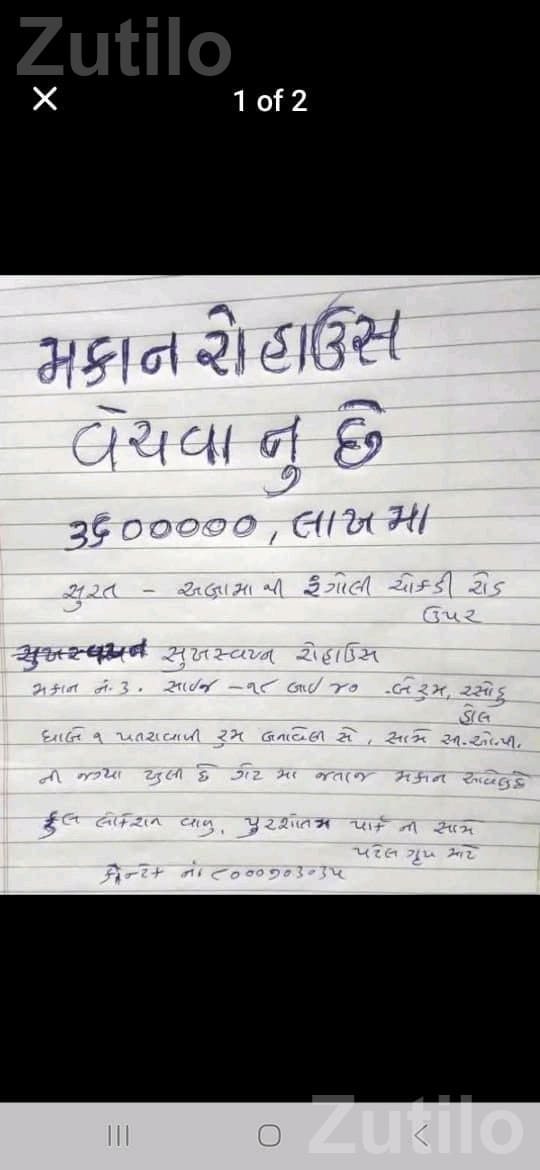 Zutilo
1 of 2
મકાન રો હાઉસ
વેચવા નુ છે
૩૬૦૦૦૦૦, લાખ મા
સુરત - અબ્રામા થી રંગોલી ચોકડી રોડ
ઉપર
સુખસ્વપ્ન સુખસ્વપ્ન રોહાઉસ
મકાન નં. ૩. સાઇજ - ૧૮ બાઇ ૪૦ .બે રુમ, રસોડુ
હોલ
ધાબે ૧ પતરાવાળી રુમ બનાવેલ સે, સામે સી.ઓ.પી.
ની જગ્યા ખુલી છે ગેટ મા જતાજ મકાન આવેલુ છે
ફુલ લોકેશન વાળુ, પુરશોતમ પાર્ક ની સામે
પટેલ ગ્રુપ માટે
કોન્ટેક નં. ૮૦૦૦૧૦૩૦૩૫
Zutilo